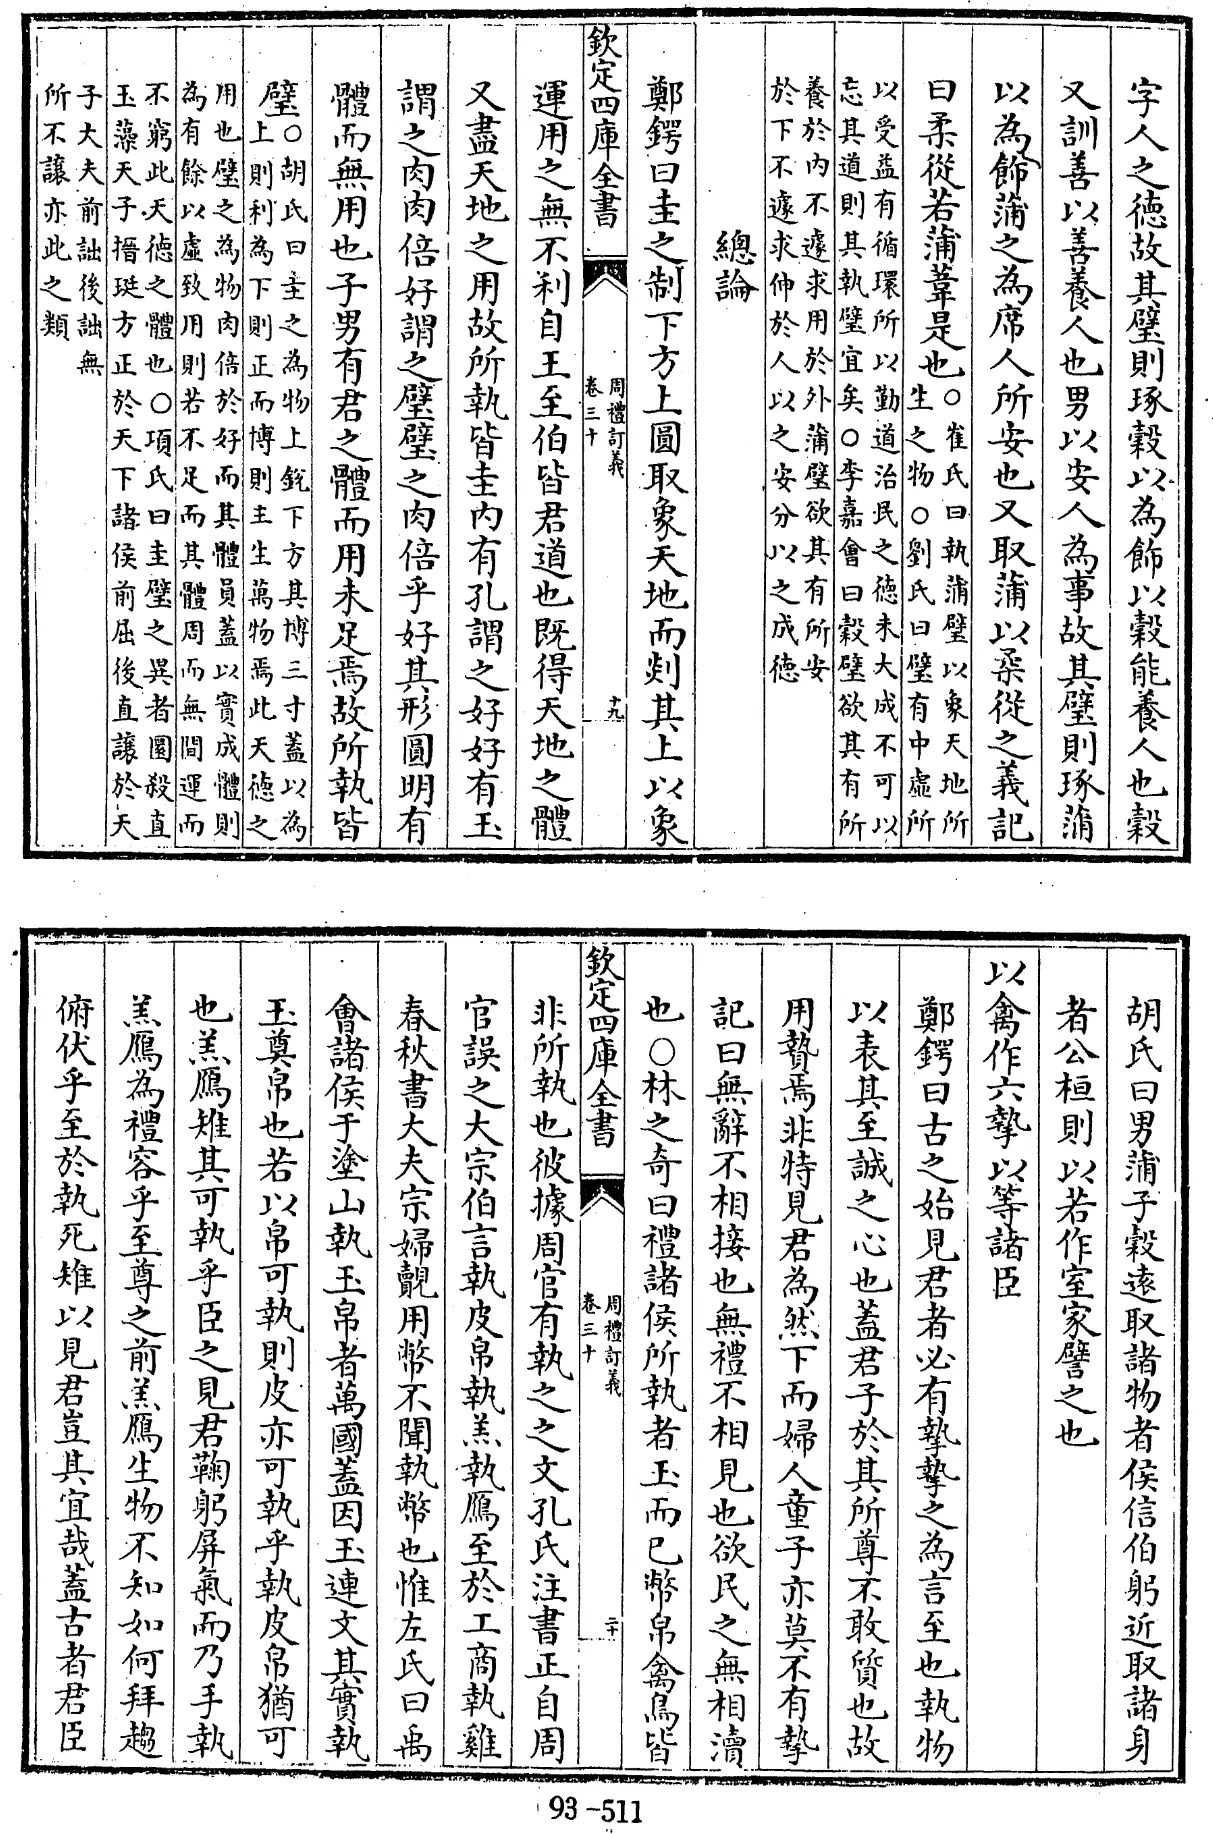 字人之德故其璧則琢穀以為飾以穀能養人也穀
又訓善以善養人也男以安人為事故其璧則琢蒲
以為飾蒲之為席人所安也又取蒲以柔從之義記
曰柔從若蒲葦是也○崔氏曰執蒲璧以象天地所
生之物○劉氏曰璧有中虛所
以受益有循環所以勤道治民之德未大成不可以
忘其道則其執璧宜矣○李嘉會曰穀璧欲其有所
養於内不遽求用於外蒲璧欲其有所安
於下不遽求伸於人以之安分以之成德
總論
鄭鍔曰圭之制下方上圓取象天地而剡其上以象
欽定四庫全書
周禮訂義
卷三十
十九
運用之無不利自王至伯皆君道也既得天地之體
又盡天地之用故所執皆圭内有孔謂之好好有玉
謂之肉肉倍好謂之璧璧之肉倍乎好其形圓明有
體而無用也子男有君之體而用未足焉故所執皆
璧○胡氏曰圭之為物上銳下方其博三寸蓋以為
上則利為下則正而博則主生萬物焉此天德之
用也璧之為物肉倍於好而其體員蓋以實成體則
為有餘以虛致用則若不足而其體周而無間運而
不窮此天德之體也○項氏曰圭璧之異者圜殺直
玉藻天子搢珽方正於天下諸侯前屈後直讓於天
子大夫前詘後詘無
所不讓亦此之類
胡氏曰男蒲子穀遠取諸物者侯信伯躬近取諸身
者公桓則以若作室家譬之也
以禽作六摯以等諸臣
鄭鍔曰古之始見君者必有摯摯之為言至也執物
以表其至誠之心也蓋君子於其所尊不敢質也故
用贄焉非特見君為然下而婦人童子亦莫不有摯
記曰無辭不相接也無禮不相見也欲民之無相瀆
也○林之奇曰禮諸侯所執者玉而已幣帛禽鳥皆
欽定四庫全書
周禮訂義
卷三十
二十
非所執也彼據周官有執之之文孔氏注書正自周
官誤之大宗伯言執皮帛執羔執鴈至於工商執雞
春秋書大夫宗婦覿用幣不聞執幣也惟左氏曰禹
會諸侯于塗山執玉帛者萬國蓋因玉連文其實執
玉奠帛也若以帛可執則皮亦可執乎執皮帛猶可
也羔鴈雉其可執乎臣之見君鞠躬屏氣而乃手執
羔鴈為禮容乎至尊之前羔鴈生物不知如何拜趨
俯伏乎至於執死雉以見君豈其宜哉蓋古者君臣
93-511